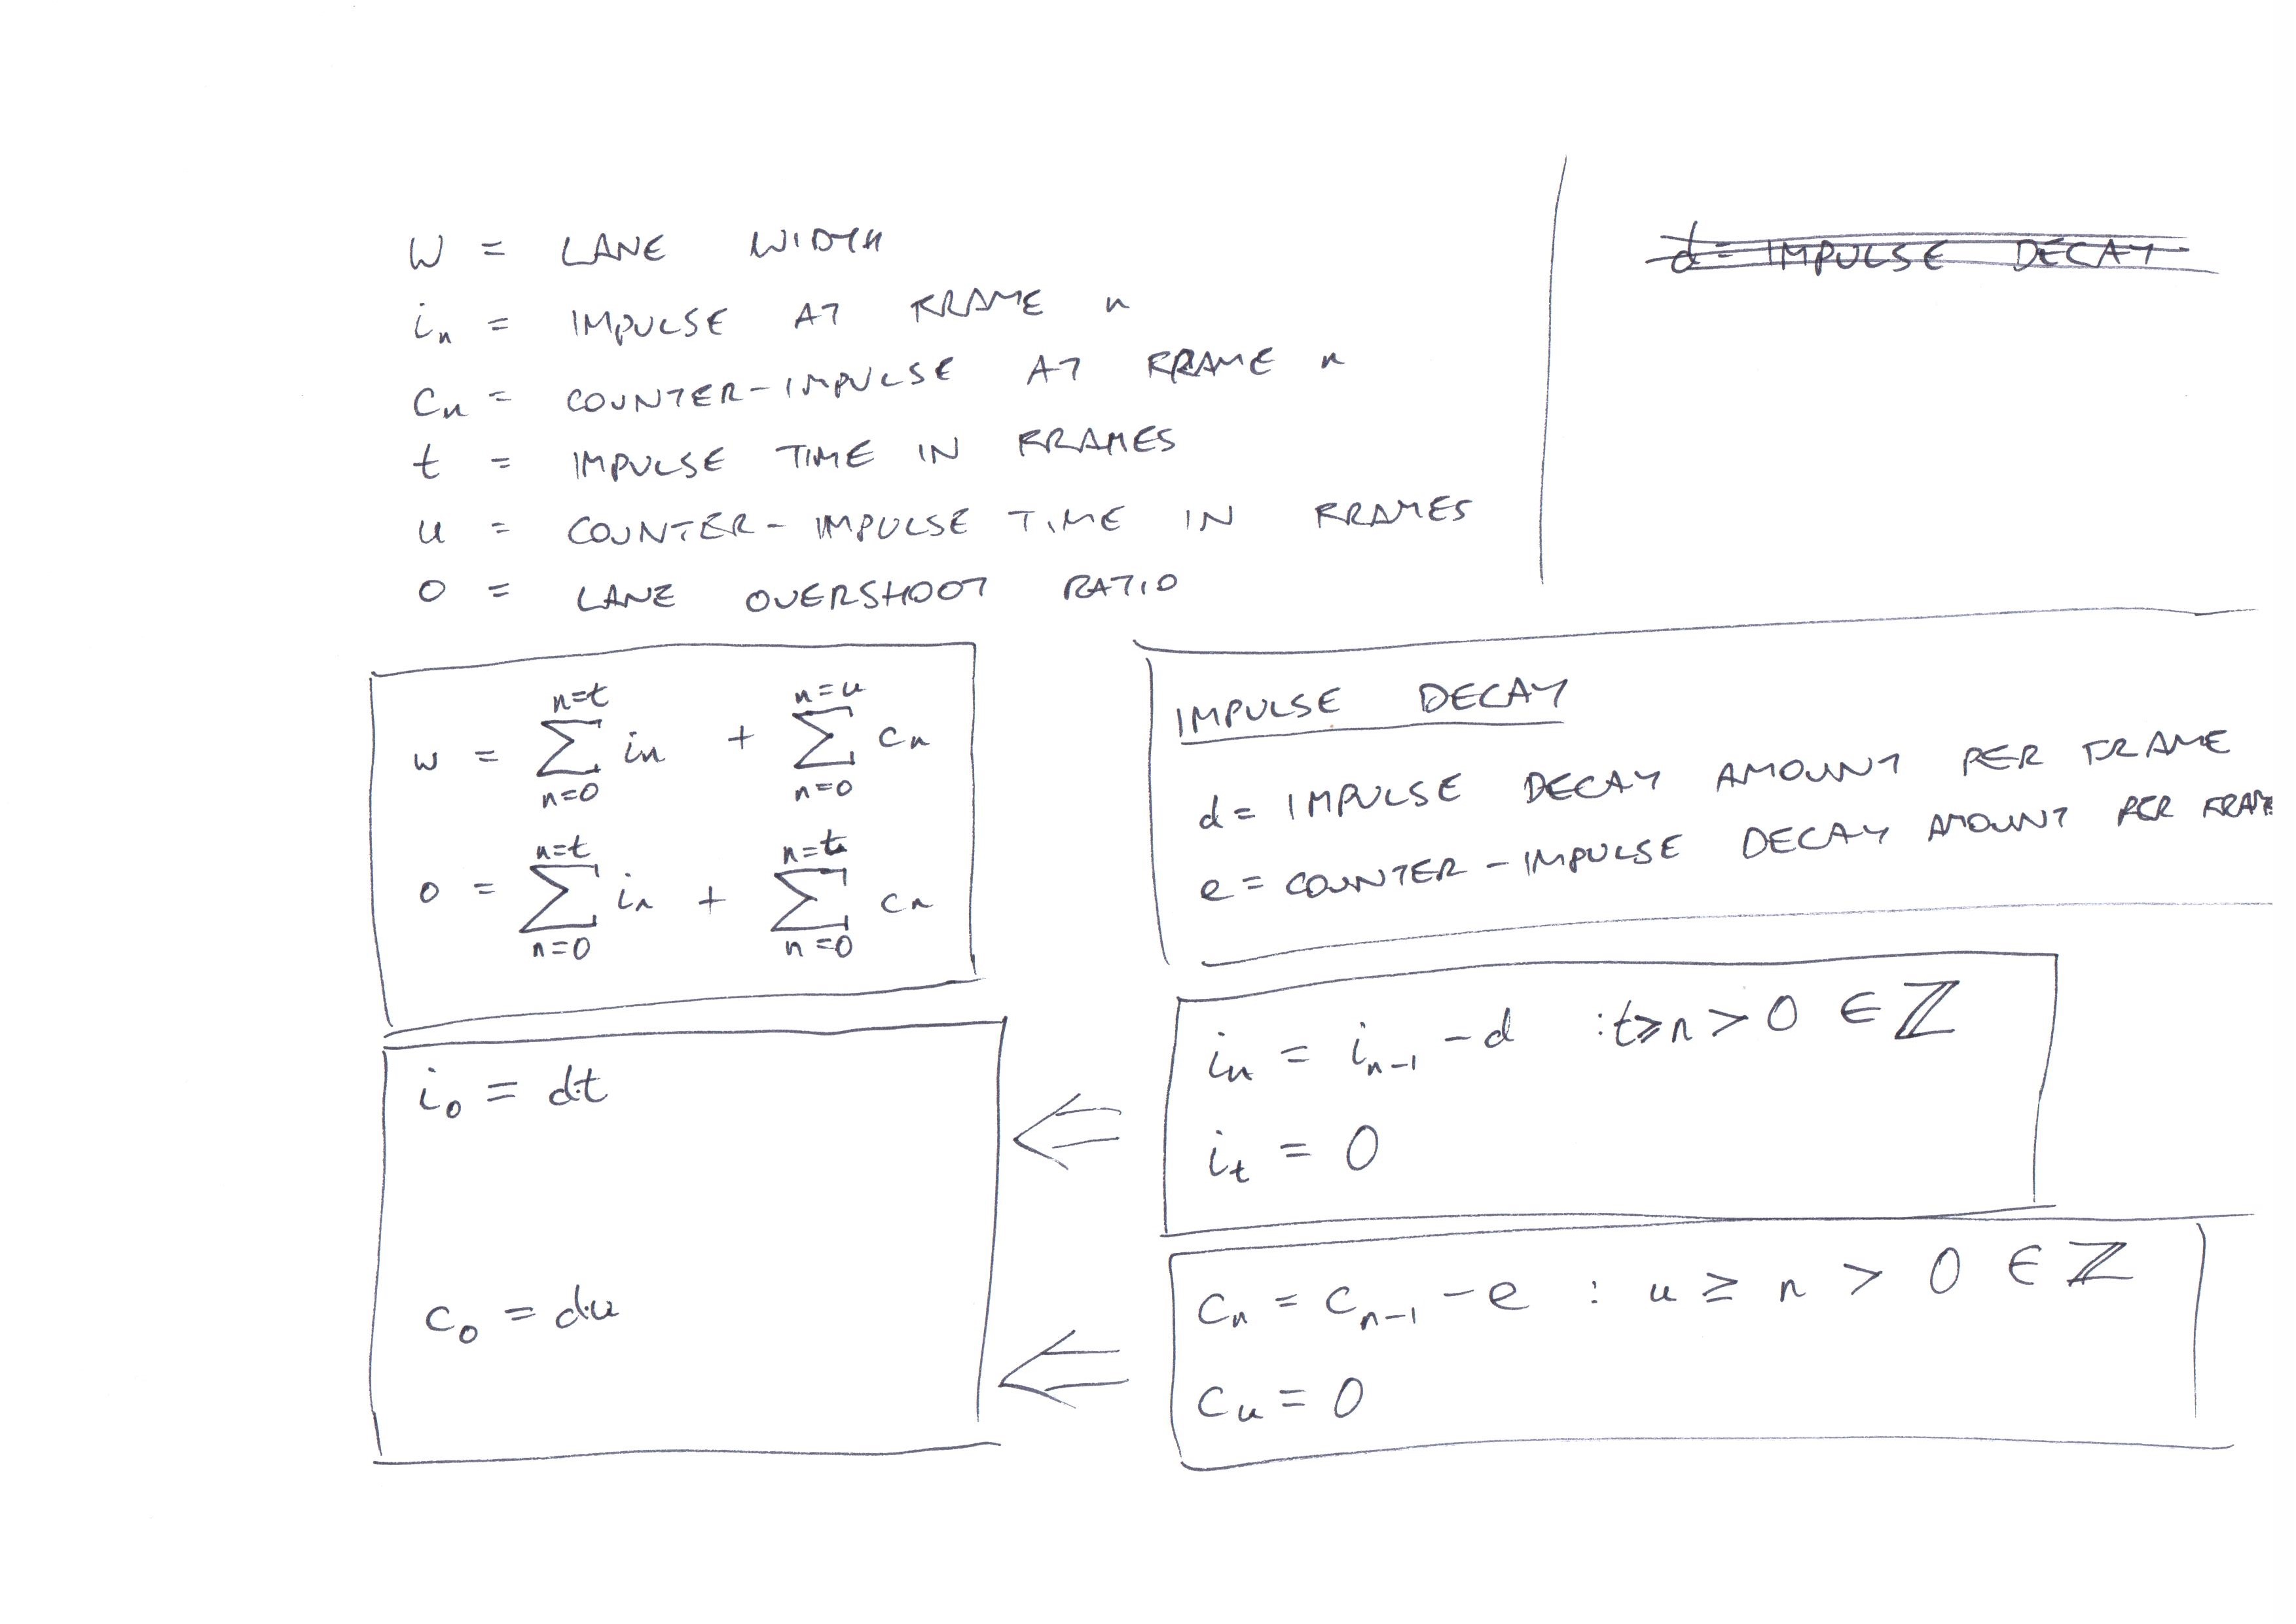 W = LANE WIDTH
iₙ = IMPULSE AT FRAME n
cₙ = COUNTER-IMPULSE AT FRAME n
t = IMPULSE TIME IN FRAMES
u = COUNTER-IMPULSE TIME IN FRAMES
O = LANE OVERSHOOT RATIO
d = IMPULSE DECAY
n=t n=u
w = ∑ iₙ + ∑ cₙ
n=0 n=0
n=t n=t
o = ∑ iₙ + ∑ cₙ
n=0 n=0
IMPULSE DECAY
d = IMPULSE DECAY AMOUNT PER FRAME
e = COUNTER-IMPULSE DECAY AMOUNT PER FRAME
i₀ = dt
c₀ = du
⇐
⇐
iₙ = iₙ₋₁ - d : t ≥ n > 0 ∈ ℤ
iₜ = 0
cₙ = cₙ₋₁ - e : u ≥ n > 0 ∈ ℤ
cᵤ = 0